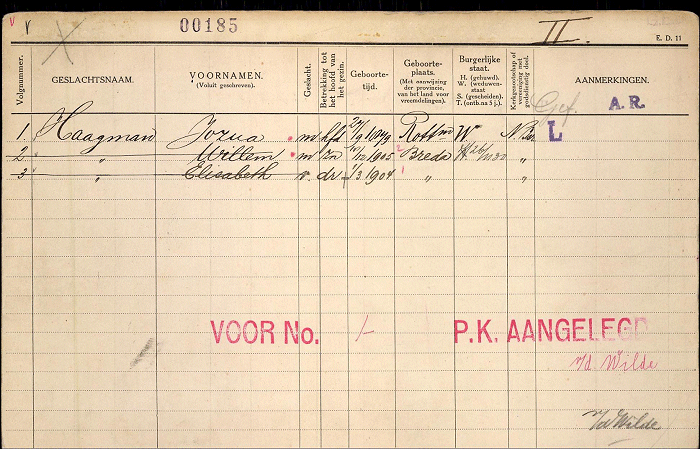 V V 00185 II.
E. D. 11
Volgnummer. GESLACHTSNAAM. VOORNAMEN. (Voluit geschreven). Geslacht. Betrekking tot het hoofd van het gezin. Geboorte-tijd. Geboorte-plaats. (Met aanwijzing der provincie, van het land voor vreemdelingen). Burgerlijke staat. H. (gehuwd). W. (weduwen-staat S. (gescheiden). T. (ontb.na 5 j.). Kerkgenootschap of vereeniging met godsdienstig doel. AANMERKINGEN.
Gef. A.R.
1. Haagman Jozua m hfd Rottm W N.Her L
2 " Willem m zn 1905 2 Breda H "
3 " Elisabeth v. dr 1/3 1904 1 " "
VOOR No. 1- P.K. AANGELEGD
v/d Wilde
v/d Wilde